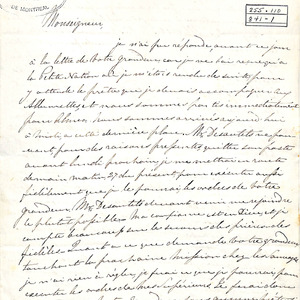 DE MONTRÉAL
255-110
841-1
Monseigneur
je n'ai pu répondre avant ce jour
à la lettre de Votre grandeur que j'ai reçue à
la Petite Nation où je m'étais rendu de suite pour
y attendre le prêtre que je devais accompagner aux
Allumettes, et nous sommes partis immédiatement
pour Nous sommes arrivés aujourd'hui
à cette dernière place. Mr Desautels ne pou-
vant pour des raisons pressantes quitter son poste
avant lundi prochain, je me mettrai en route
demain matin 27 du présent pour exécuter aussi
fidèlement que je le pourrai les ordres de Votre
grandeur. Mr Desautels devant venir me rejoindre
le plutôt possible. Ma confiance est en Dieu et je
compte beaucoup sur le secours des prières des
fidèles. Quant à ce que demande Votre grandeur
touchant la prochaine mission chez les sauvages
je n'ai rien à régler, je ferai ce que je pourrai pour
exécuter les ordres de mes supérieurs